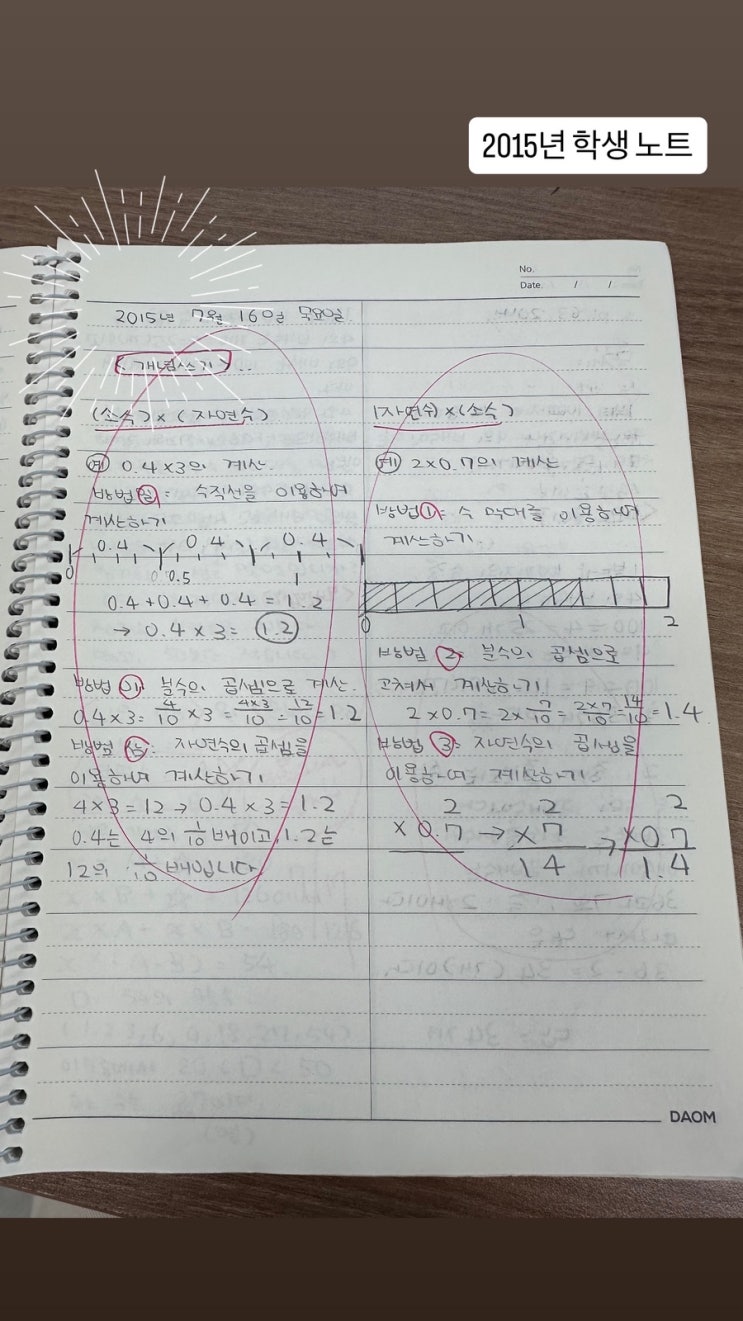 2015년 학생 노트
No.
Date. / /
2015년 7월 16일 목요일
<개념쓰기>
(소수)×(자연수)
예 0.4×3의 계산
방법 수직선을 이용하여
계산하기
0.4 0.4 0.4
0 0.5 1
0.4+0.4+0.4=1.2
→ 0.4×3=1.2
방법 분수의 곱셈으로 계산.
0.4×3=4/10×3=4×3/10=12/10=1.2
방법 자연수의 곱셈을
이용하여 계산하기
4×3=12→0.4×3=1.2
0.4는 4의 1/10배이고, 1.2는
12의 1/10배입니다
(자연수)×(소수)
예 2×0.7의 계산
방법1: 수 막대를 이용하여
계산하기
0 1 2
방법 2: 분수의 곱셈으로
고쳐서 계산하기
2×0.7=2×7/10=2×7/10=14/10=1.4
방법 3: 자연수의 곱셈을
이용하여 계산하기
2 2 2
×0.7 → ×7 → ×0.7
14 1.4
DAOM